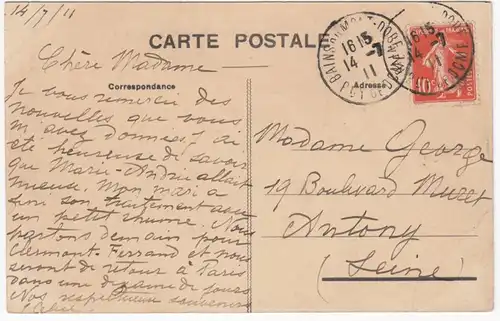 14/7/11
CARTE POSTALE
BAINS DU MONT-DORE
16 15
14 -7
11
PUY DE DOME
10
Correspondance
Adresse
Chère Madame
Je vous remercie des
nouvelles que vous
m'avez données, j'ai
été heureuse de savoir
que Marie-Andrée allait
mieux. Mon mari a
fini son traitement avec
un petit rhume. Nous
partons demain pour
Clermont-Ferrand et nous
seront de retour à Paris
dans une dizaine de jours
Nos respectueux souvenirs
Madame George
19 Boulevard Muret
Antony
(Seine)